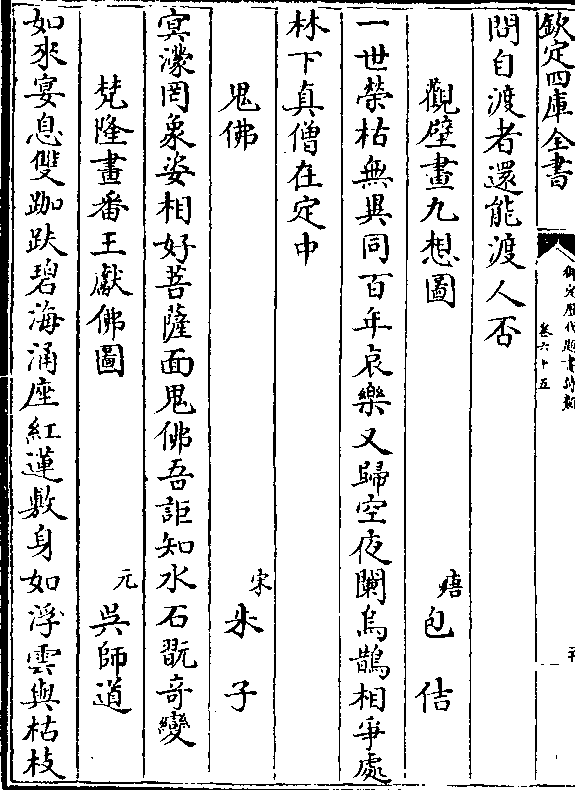 欽定四庫全書
御定歷代題畫詩類
卷六十五
問自渡者還能渡人否
觀壁畫九想圖 唐 包佶
一世榮枯無異同百年哀樂又歸空夜闌鳥鵲相爭處
林下真僧在定中
鬼佛 宋 朱子
冥濛罔象姿相好菩薩面鬼佛吾詎知水石翫奇變
梵隆畫番王獻佛圖 元 吳師道
如來宴息雙跏趺碧海涌座紅蓮敷身如浮雲與枯枝